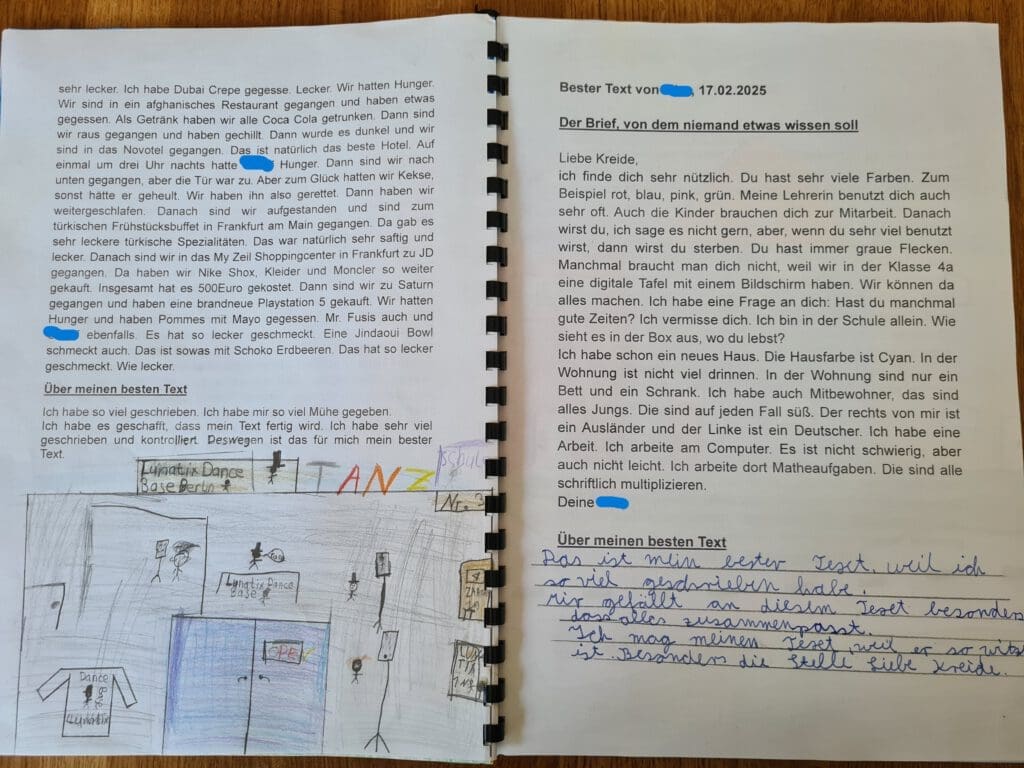 sehr lecker. Ich habe Dubai Crepe gegesse. Lecker. Wir hatten Hunger.
Wir sind in ein afghanisches Restaurant gegangen und haben etwas
gegessen. Als Getränk haben wir alle Coca Cola getrunken. Dann sind
wir raus gegangen und haben gechillt. Dann wurde es dunkel und wir
sind in das Novotel gegangen. Das ist natürlich das beste Hotel. Auf
einmal um drei Uhr nachts hatte Hunger. Dann sind wir nach
unten gegangen, aber die Tür war zu. Aber zum Glück hatten wir Kekse,
sonst hätte er geheult. Wir haben ihn also gerettet. Dann haben wir
weitergeschlafen. Danach sind wir aufgestanden und sind zum
türkischen Frühstücksbuffet in Frankfurt am Main gegangen. Da gab es
sehr leckere türkische Spezialitäten. Das war natürlich sehr saftig und
lecker. Danach sind wir in das My Zeil Shoppingcenter in Frankfurt zu JD
gegangen. Da haben wir Nike Shox, Kleider und Moncler so weiter
gekauft. Insgesamt hat es 500Euro gekostet. Dann sind wir zu Saturn
gegangen und haben eine brandneue Playstation 5 gekauft. Wir hatten
Hunger und haben Pommes mit Mayo gegessen. Mr. Fusis auch und
ebenfalls. Es hat so lecker geschmeckt. Eine Jindaoui Bowl
schmeckt auch. Das ist sowas mit Schoko Erdbeeren. Das hat so lecker
geschmeckt. Wie lecker.
Über meinen besten Text
Ich habe so viel geschrieben. Ich habe mir so viel Mühe gegeben.
Ich habe es geschafft, dass mein Text fertig wird. Ich habe sehr viel
geschrieben und kontrolliert. Deswegen ist das für mich mein bester
Text.
Lunatix Dance
Base Berlin
TANZ
Nr. 3
Lunatix Dance
Base
OPEN
Dance
Base
Bester Text von , 17.02.2025
Der Brief, von dem niemand etwas wissen soll
Liebe Kreide,
ich finde dich sehr nützlich. Du hast sehr viele Farben. Zum
Beispiel rot, blau, pink, grün. Meine Lehrerin benutzt dich auch
sehr oft. Auch die Kinder brauchen dich zur Mitarbeit. Danach
wirst du, ich sage es nicht gern, aber, wenn du sehr viel benutzt
wirst, dann wirst du sterben. Du hast immer graue Flecken.
Manchmal braucht man dich nicht, weil wir in der Klasse 4a
eine digitale Tafel mit einem Bildschirm haben. Wir können da
alles machen. Ich habe eine Frage an dich: Hast du manchmal
gute Zeiten? Ich vermisse dich. Ich bin in der Schule allein. Wie
sieht es in der Box aus, wo du lebst?
Ich habe schon ein neues Haus. Die Hausfarbe ist Cyan. In der
Wohnung ist nicht viel drinnen. In der Wohnung sind nur ein
Bett und ein Schrank. Ich habe auch Mitbewohner, das sind
alles Jungs. Die sind auf jeden Fall süß. Der rechts von mir ist
ein Ausländer und der Linke ist ein Deutscher. Ich habe eine
Arbeit. Ich arbeite am Computer. Es ist nicht schwierig, aber
auch nicht leicht. Ich arbeite dort Matheaufgaben. Die sind alle
schriftlich multiplizieren.
Deine
Über meinen besten Text
Das ist mein bester Text, weil ich
so viel geschrieben habe.
Mir gefällt an diesem Text besonders
dass alles zusammenpasst.
Ich mag meinen Text, weil er so witz
ist. Besonders die Stelle Liebe Kreide.